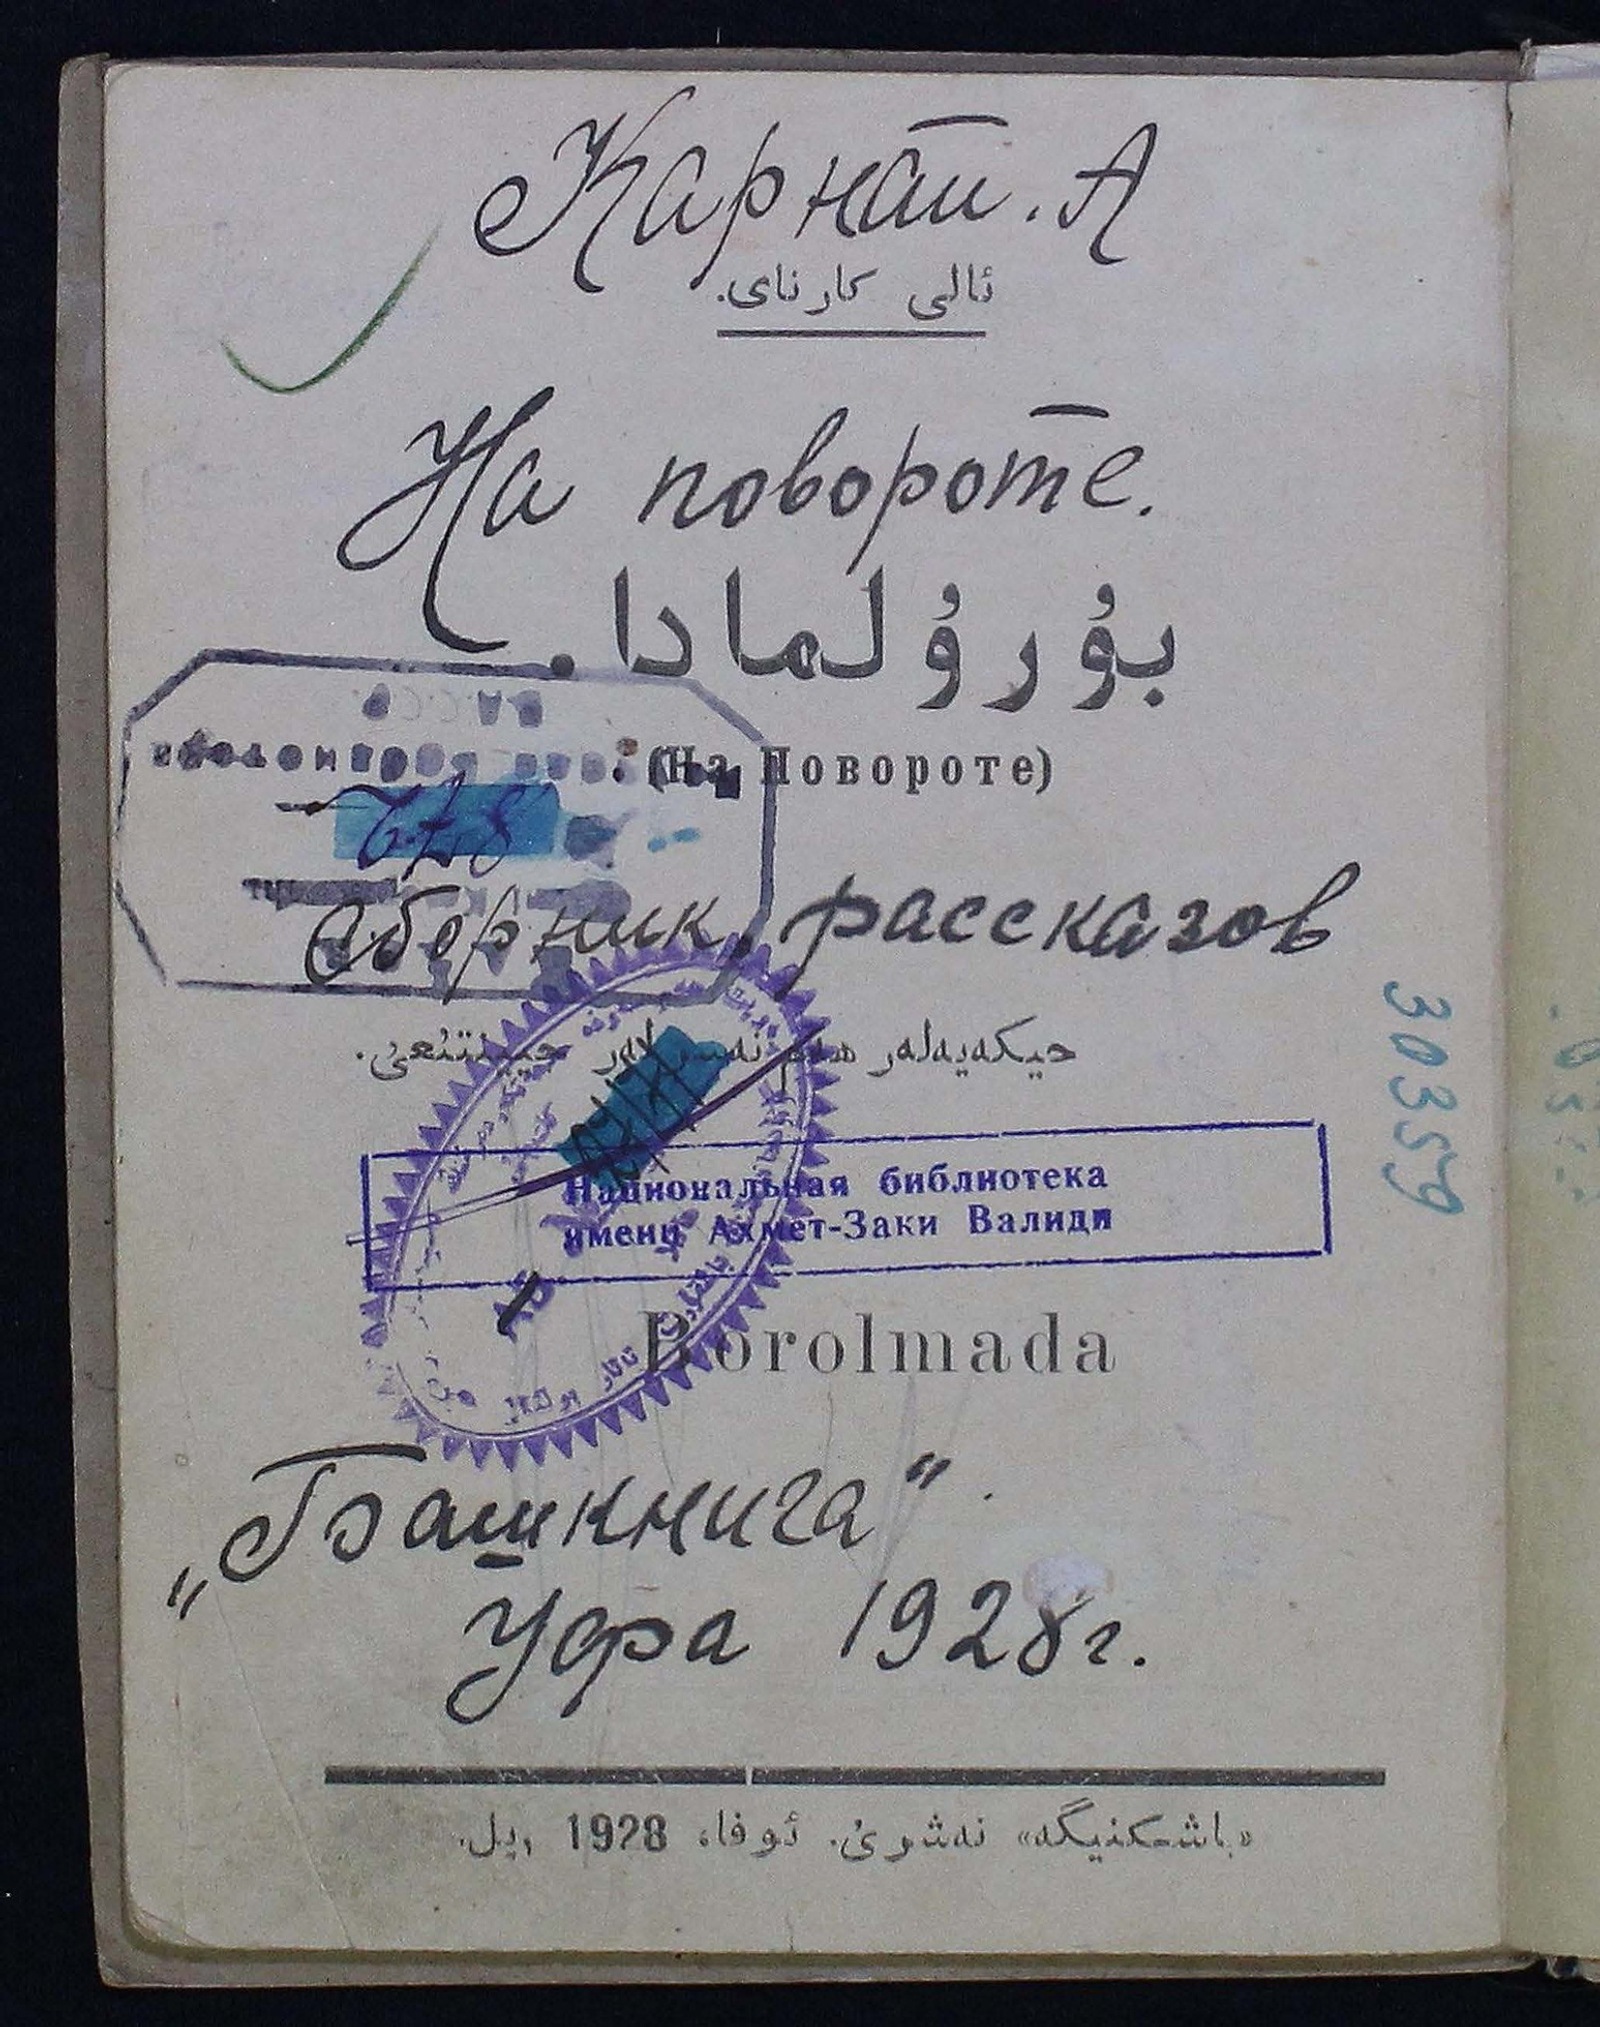 Карнай. А
ئالی کارنای.
На повороте.
بۇرۇلمادا.
(На Повороте)
678
Сборник рассказов
حیکەیەلەر هەم نەسرلەر
30359
Национальная библиотека
имени Ахмет-Заки Валиди
Borolmada
„Башкнига“.
Уфа 1928г.
«باشکنیگە» نەشرێ. ئوفا، 1928 یل.